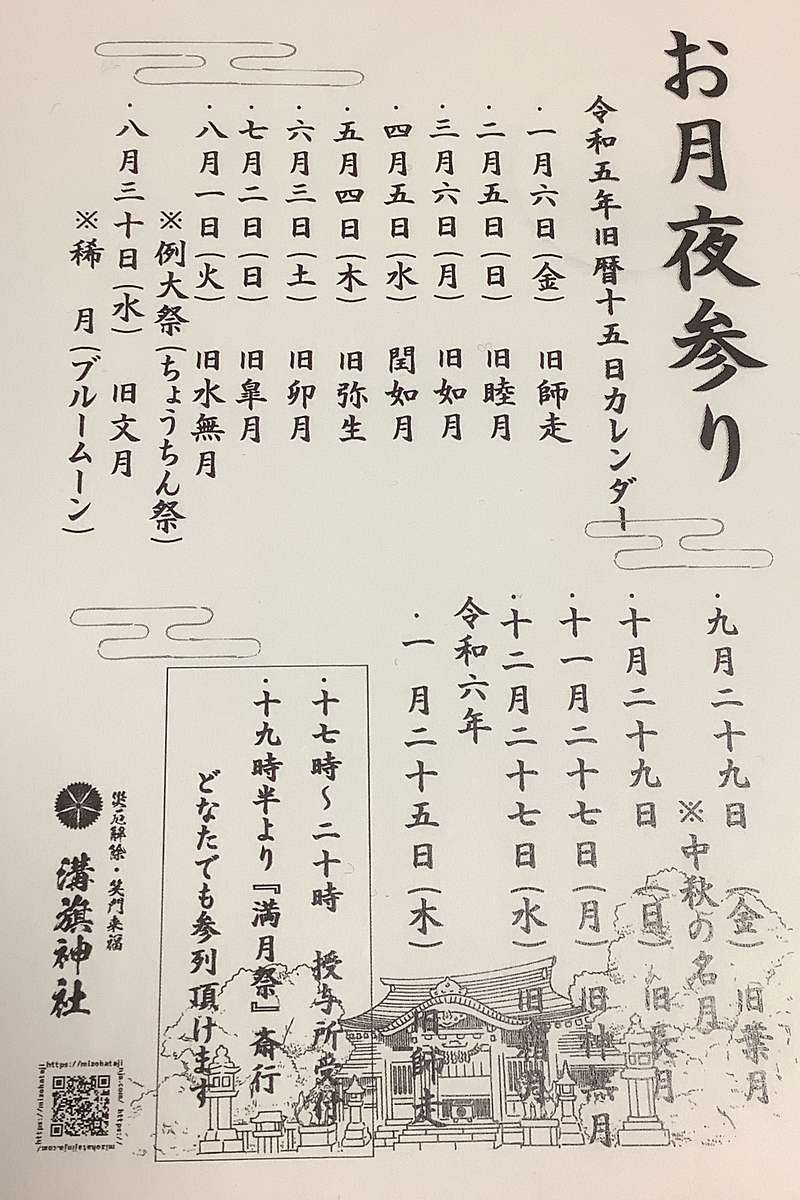 お月夜参り
令和五年旧暦十五日カレンダー
・一月六日(金) 旧師走
・二月五日(日) 旧睦月
・三月六日(月) 旧如月
・四月五日(水) 閏如月
・五月四日(木) 旧弥生
・六月三日(土) 旧卯月
・七月二日(日) 旧皐月
・八月一日(火) 旧水無月
※例大祭(ちょうちん祭)
・八月三十日(水) 旧文月
※稀 月(ブルームーン)
・九月二十九日(金) 旧葉月
※中秋の名月
・十月二十九日(日) 旧長月
・十一月二十七日(月) 旧神無月
・十二月二十七日(水) 旧霜月
令和六年
・一 月二十五日(木) 旧師走
・十七時～二十時 授与所受付
・十九時半より『満月祭』斎行
どなたでも参列頂けます
災厄解除・笑門来福
溝旗神社